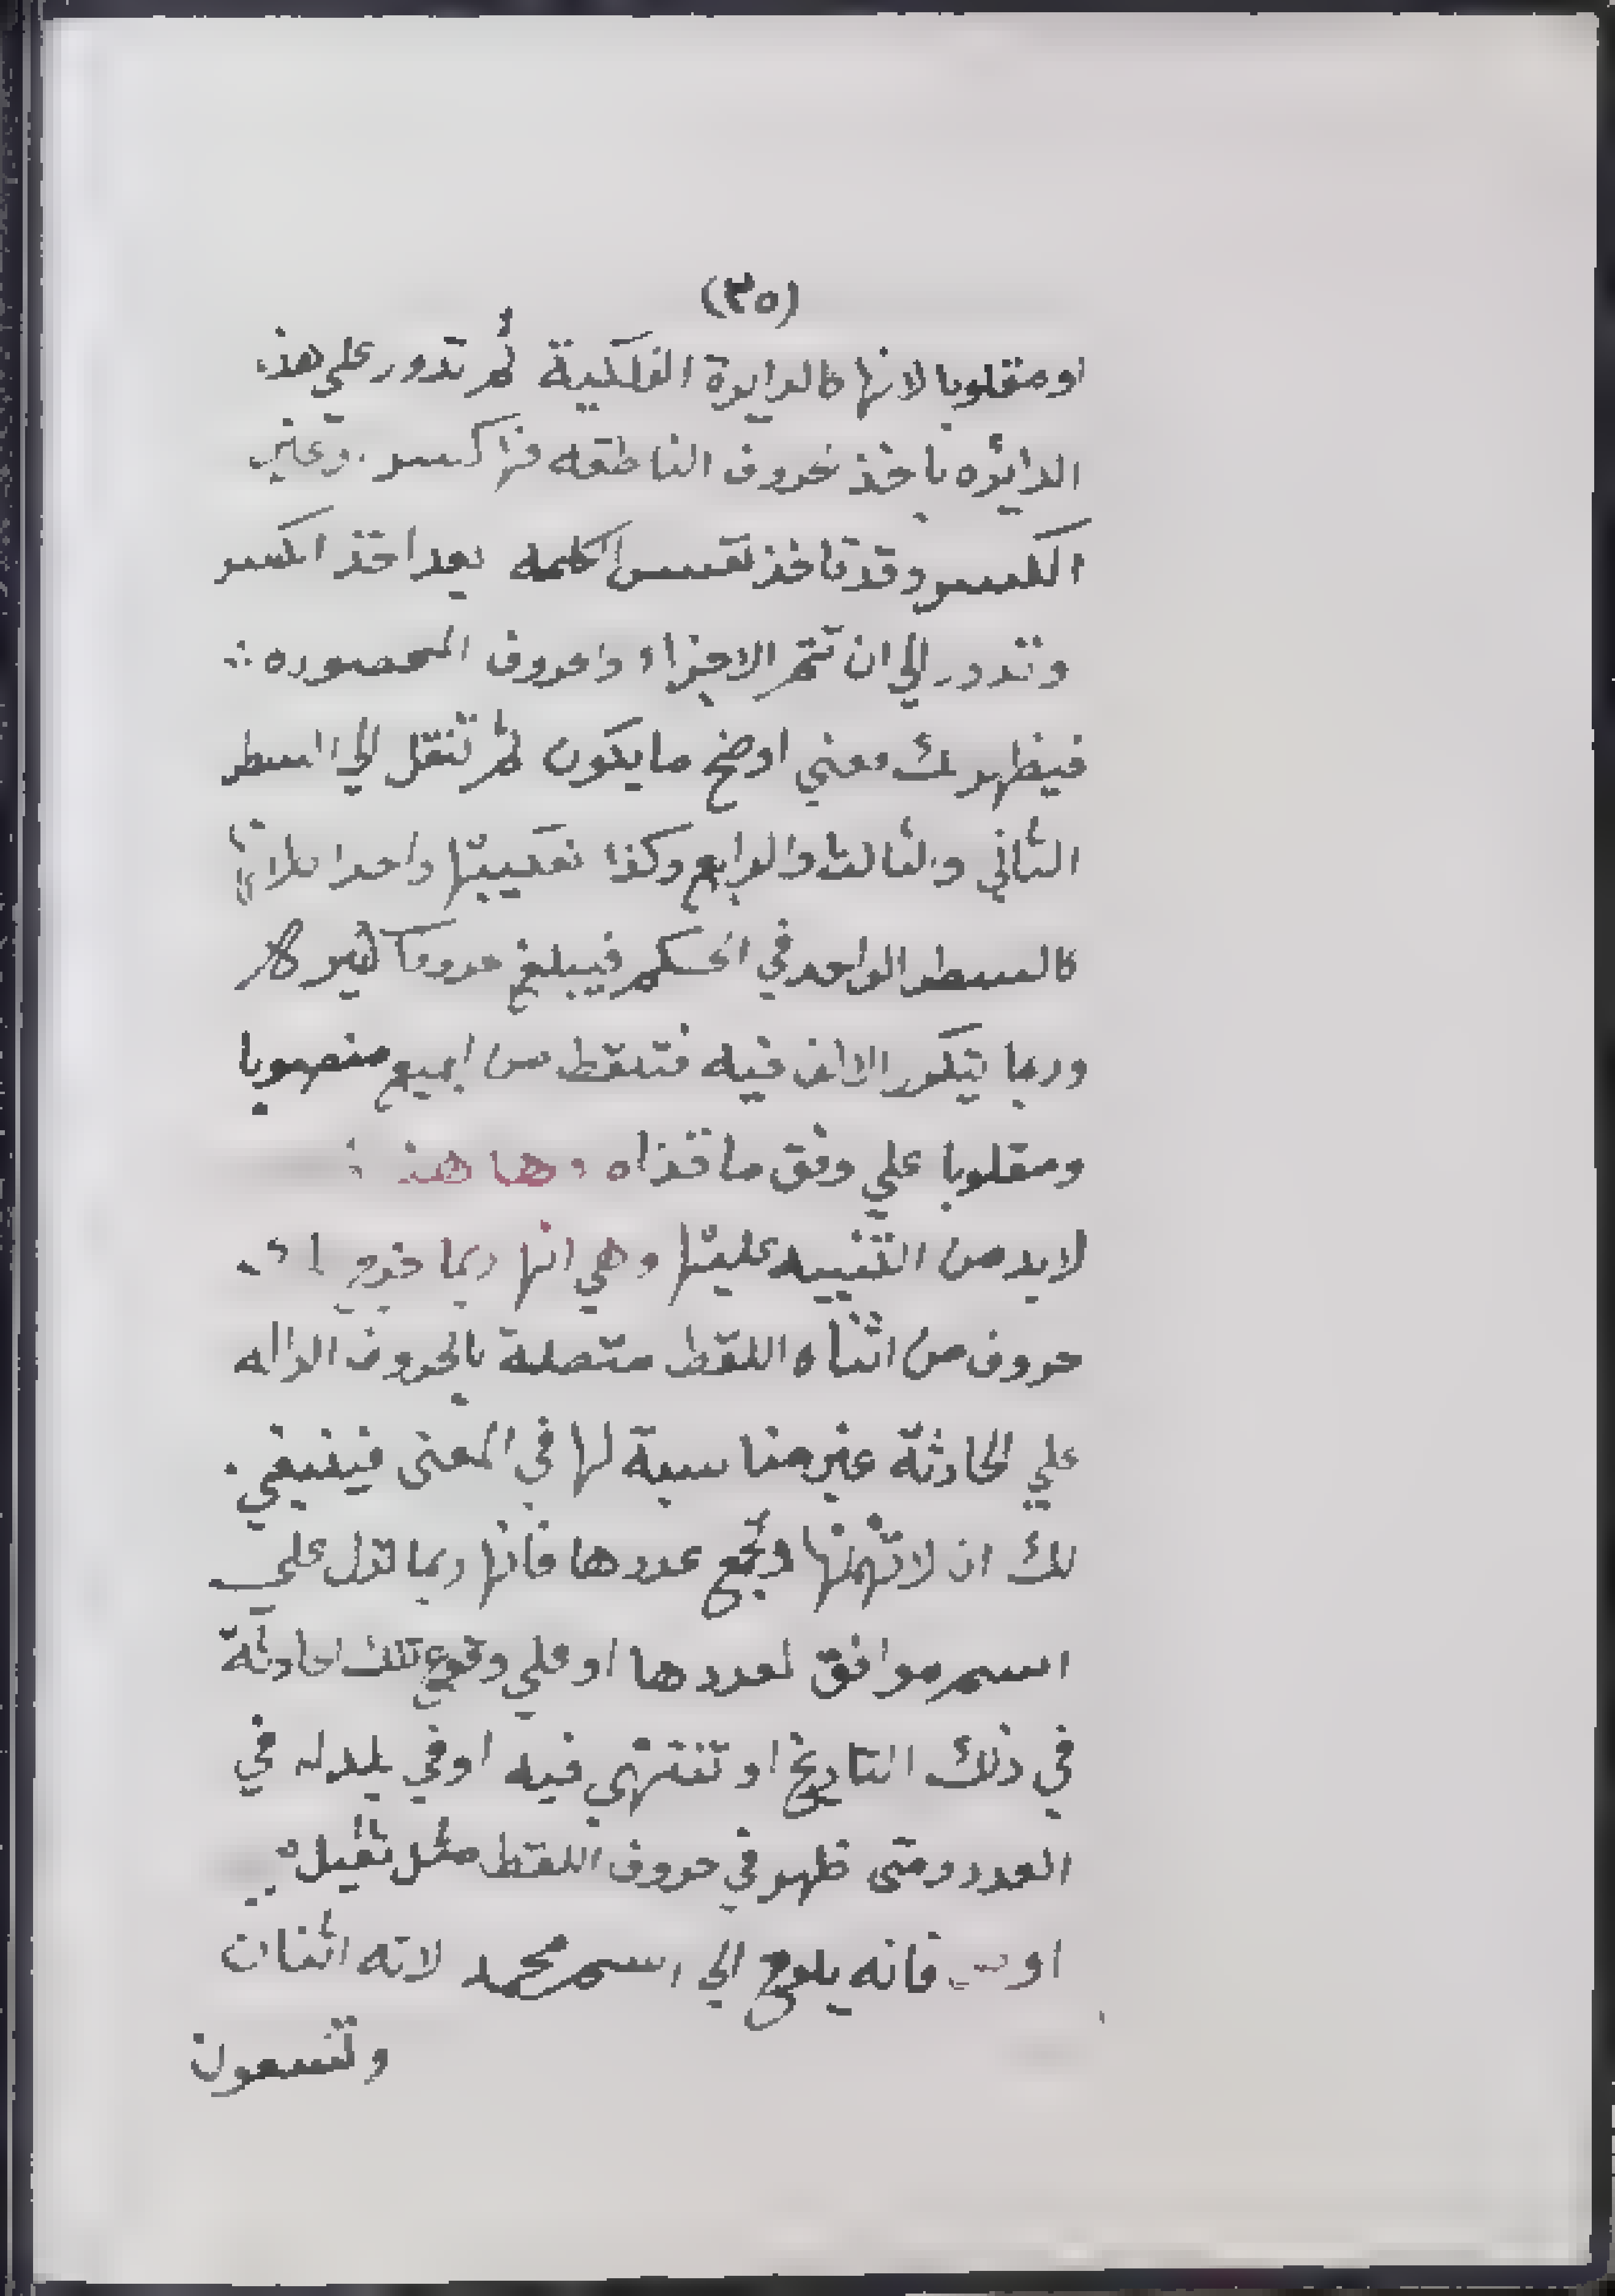 (٣٥)
او مقلوبا لانها كالدايرة الفلكية ثم تدور علي هذه
الدايره باخذ حروف الناطقه فيها كسر. وغير
الكسر وقد تاخذ نفس الكلمه بعد اخذ الكسر
وتدور الي ان تتم الاجزاء واحروف المحصوره
فيظهر لك معني اوضح ما يكون ثم تنقل الي السطر
الثاني والثالث والرابع وكذا تعديتها واحدا
كالسطر الواحد في الحكم فيبلغ حروفا كثيرة
وربما يتكرر الالف فيه فتلقط من الجميع منصوبا
ومقلوبا علي وفق ما وها هنا
لابد من التنبيه عليها وهي انها ربما خرج
حروف من اثناه اللقط متصلة بالحروف الداله
علي الحادثة غير مناسبة لها في المعنى فينبغي
لك ان لا تهملها وتجمع عددها فانها ربما تدل علي
اسم موافق لعددها او علي وقوع تلك الحادثة
في ذلك التاريخ او تنتهي فيه او في بلد له في
العدد ومتى ظهر في حروف اللقط مثل ثقيل
او فانه يلوح الي اسم محمد لانه اثنان
وتسعون